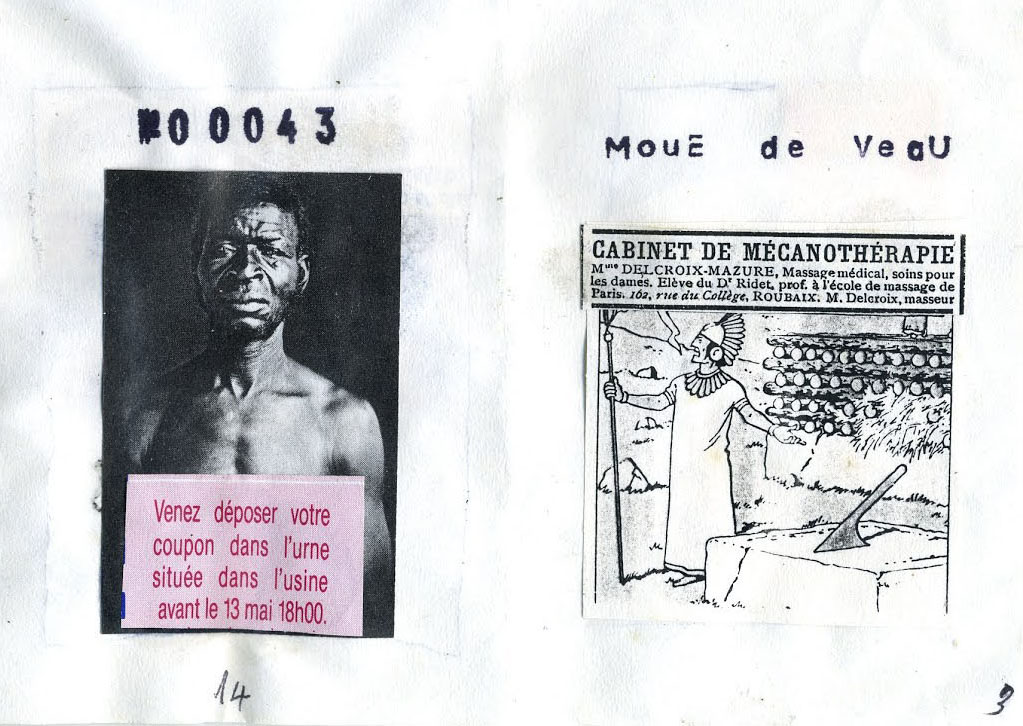 №00043
Venez déposer votre
coupon dans l'urne
située dans l'usine
avant le 13 mai 18h00.
14
MouE de VeaU
CABINET DE MÉCANOTHÉRAPIE
Mme DELCROIX-MAZURE, Massage médical, soins pour
les dames. Elève du Dr Ridet, prof. à l'école de massage de
Paris. 162, rue du Collège, ROUBAIX. M. Delcroix, masseur
3